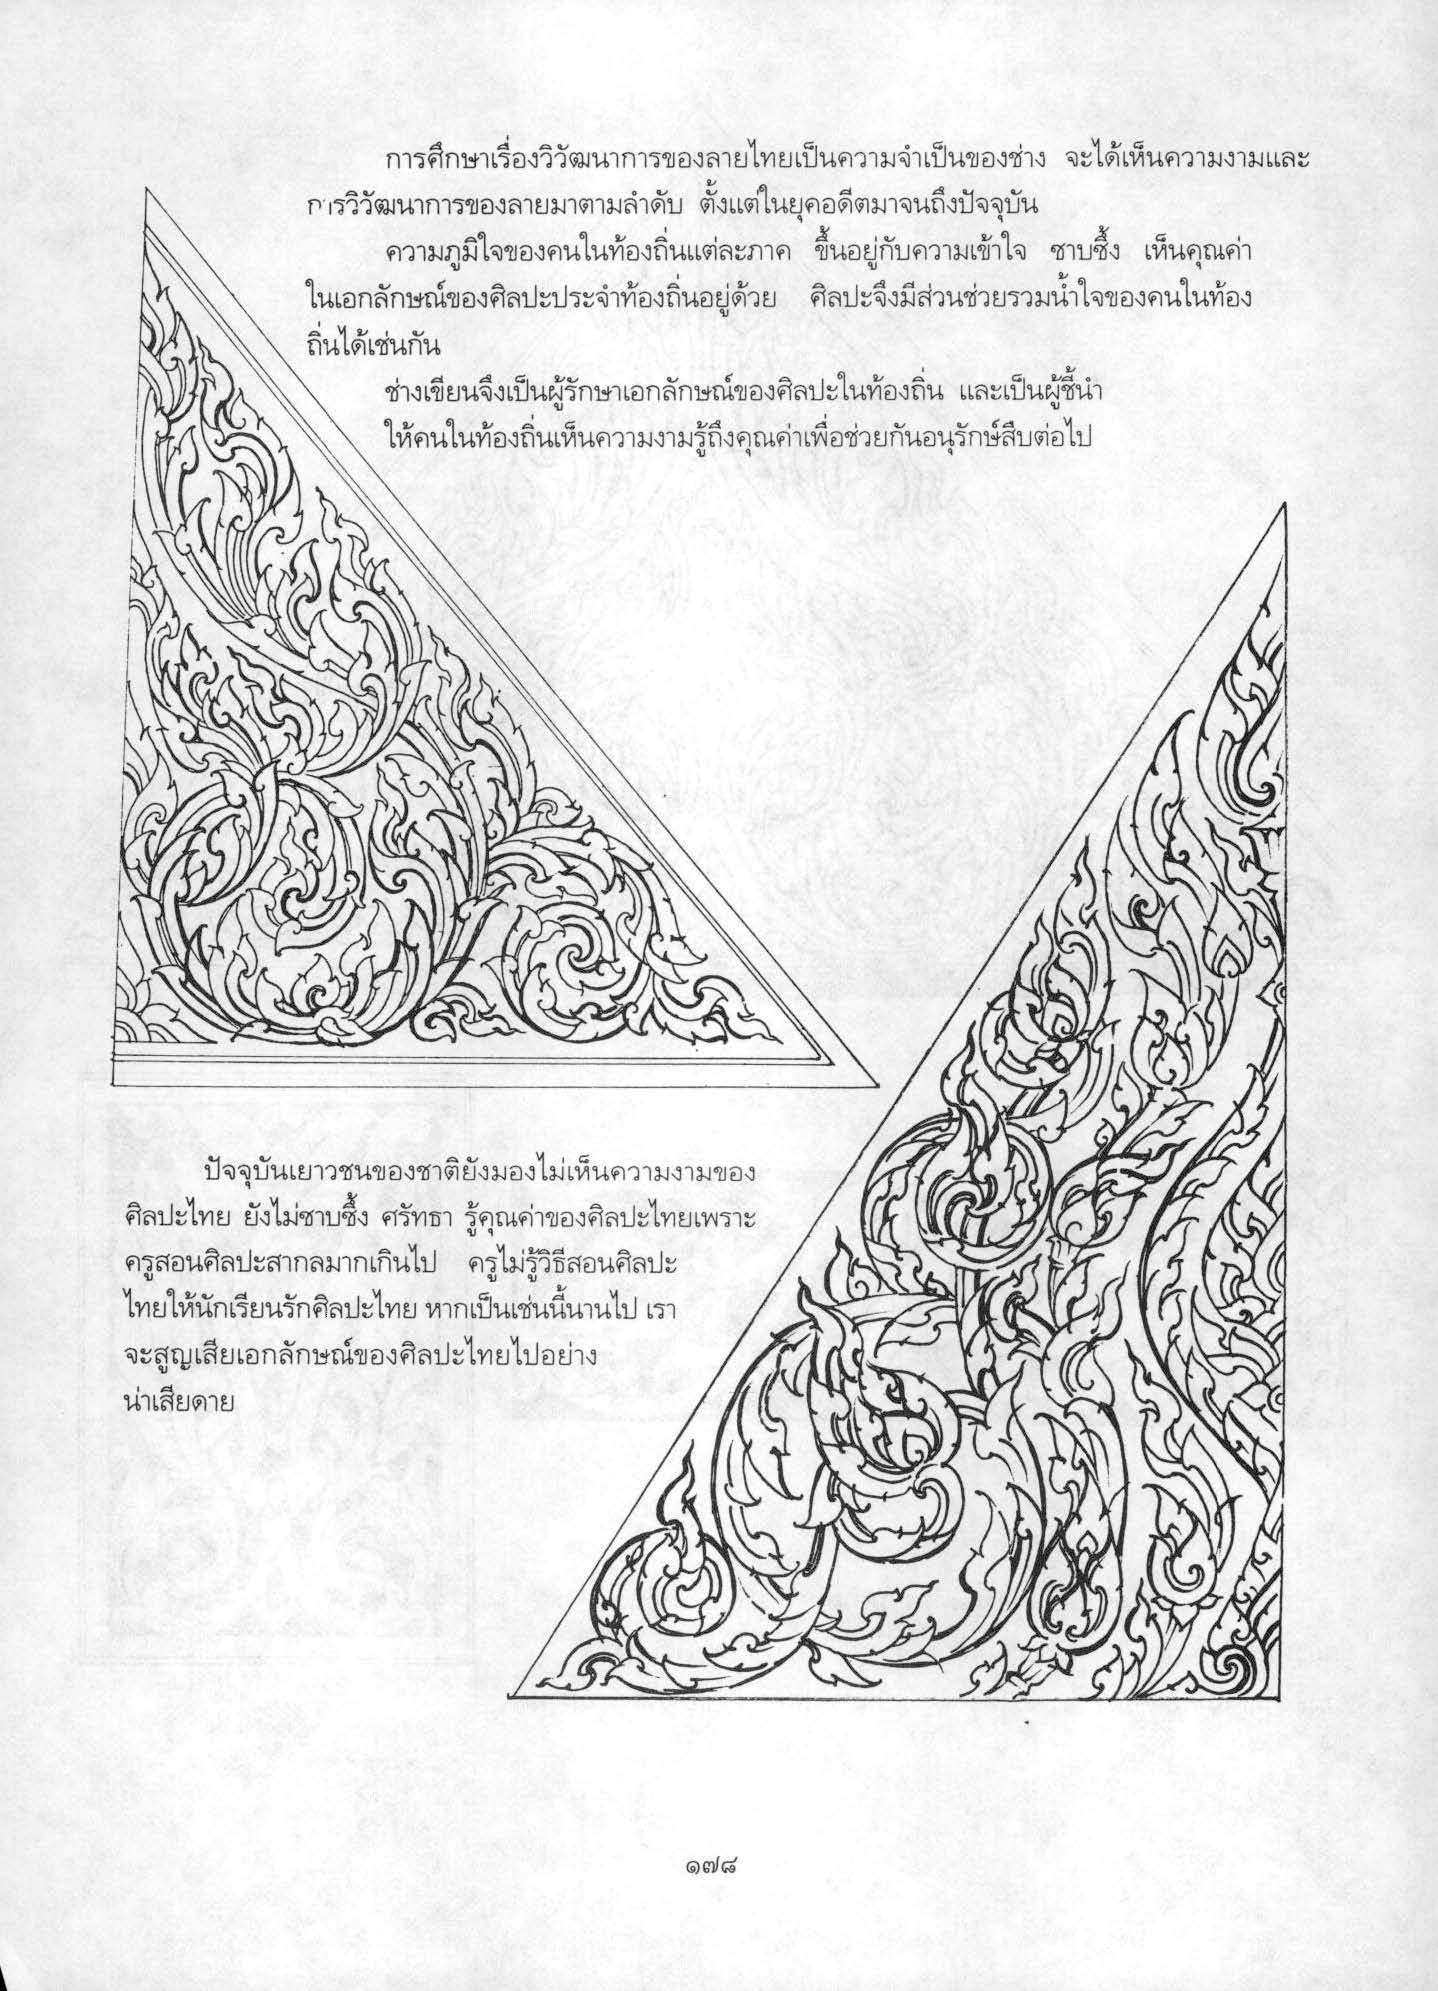 การศึกษาเรื่องวิวัฒนาการของลายไทยเป็นความจำเป็นของช่าง จะได้เห็นความงามและ
การวิวัฒนาการของลายมาตามลำดับ ตั้งแต่ในยุคอดีตมาจนถึงปัจจุบัน
ความภูมิใจของคนในท้องถิ่นแต่ละภาค ขึ้นอยู่กับความเข้าใจ ซาบซึ้ง เห็นคุณค่า
ในเอกลักษณ์ของศิลปะประจำท้องถิ่นอยู่ด้วย ศิลปะจึงมีส่วนช่วยรวมน้ำใจของคนในท้อง
ถิ่นได้เช่นกัน
ช่างเขียนจึงเป็นผู้รักษาเอกลักษณ์ของศิลปะในท้องถิ่น และเป็นผู้ชี้นำ
ให้คนในท้องถิ่นเห็นความงามรู้ถึงคุณค่าเพื่อช่วยกันอนุรักษ์สืบต่อไป
ปัจจุบันเยาวชนของชาติยังมองไม่เห็นความงามของ
ศิลปะไทย ยังไม่ซาบซึ้ง ศรัทธา รู้คุณค่าของศิลปะไทยเพราะ
ครูสอนศิลปะสากลมากเกินไป ครูไม่รู้วิธีสอนศิลปะ
ไทยให้นักเรียนรักศิลปะไทย หากเป็นเช่นนี้นานไป เรา
จะสูญเสียเอกลักษณ์ของศิลปะไทยไปอย่าง
น่าเสียดาย
๑๗๘